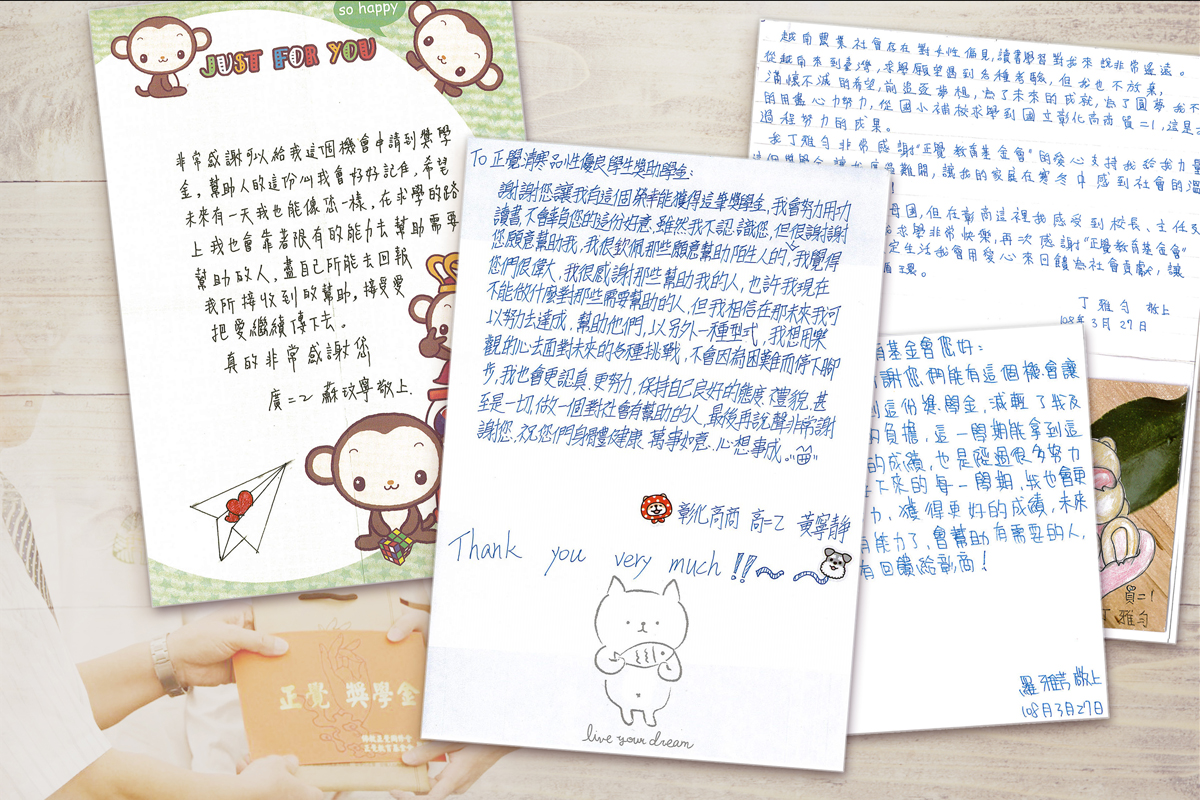 so happy
JUST FOR YOU
非常感謝可以給我這個機會申請到獎學
金，幫助人的這份心我會好好記住，希望
未來有一天我也能像您一樣，在求學的路
上我也會靠著很有的能力去幫助需要
幫助的人，盡自己所能去回報
我所接收到的幫助，接受愛
把愛繼續傳下去。
真的非常感謝您
廣二乙 蘇玟學 敬上.
To 正覺清寒品性優良學生獎助學金:
謝謝您讓我有這個榮幸能獲得這筆獎學金，我會努力用功
讀書，不會辜負您的這份好意，雖然我不認識您，但很謝謝
您願意幫助我，我很欽佩那些願意幫助陌生人的，我覺得
您們很偉大，我很感謝那些幫助我的人，也許我現在
不能做什麼對那些需要幫助的人，但我相信在那未來我可
以努力去達成，幫助他們，以另外一種型式，我想用樂
觀的心去面對未來的各種挑戰，不會因為困難而停下腳
步，我也會更認真、更努力，保持自己良好的態度、禮貌，甚
至是一切，做一個對社會有幫助的人，最後再說聲非常謝
謝您，祝您們身體健康、萬事如意、心想事成。
彰化高商 高二乙 黃寧靜
Thank you very much!!
live your dream
越南農業社會存在對女性偏見，讀書學習對我來說非常遙遠。
從越南來到臺灣，求學願望遇到各種考驗，但我也不放棄，
滿懷不滅的希望，前進逐夢想，為了未來的成就，為了圓夢我不
的用盡心力努力，從國小補校求學到國立彰化高商貿二1，這是
過程努力的成果。
我丁雅勻非常感謝"正覺教育基金會"的愛心支持我給我力量
難關，讓我的家庭在寒冬中感到社會的溫
母國，但在彰商這裡我感受到校長、主任及
求學非常快樂，再次感謝"正覺教育基金會"
定生活我會用愛心來回饋為社會貢獻，讓
循環。
丁雅勻 敬上
108年3月27日
基金會您好：
謝您們能有這個機會讓
到這份獎學金，減輕了我及
的負擔，這一學期能拿到這
的成績，也是經過很多努力
下來的每一學期，我也會更
力，獲得更好的成績，未來
有能力了，會幫助有需要的人，
有回饋給彰商！
羅雅菁 敬上
108年3月27日
貿二1
丁雅勻
正覺 獎學金
佛教正覺同修會
正覺教育基金會